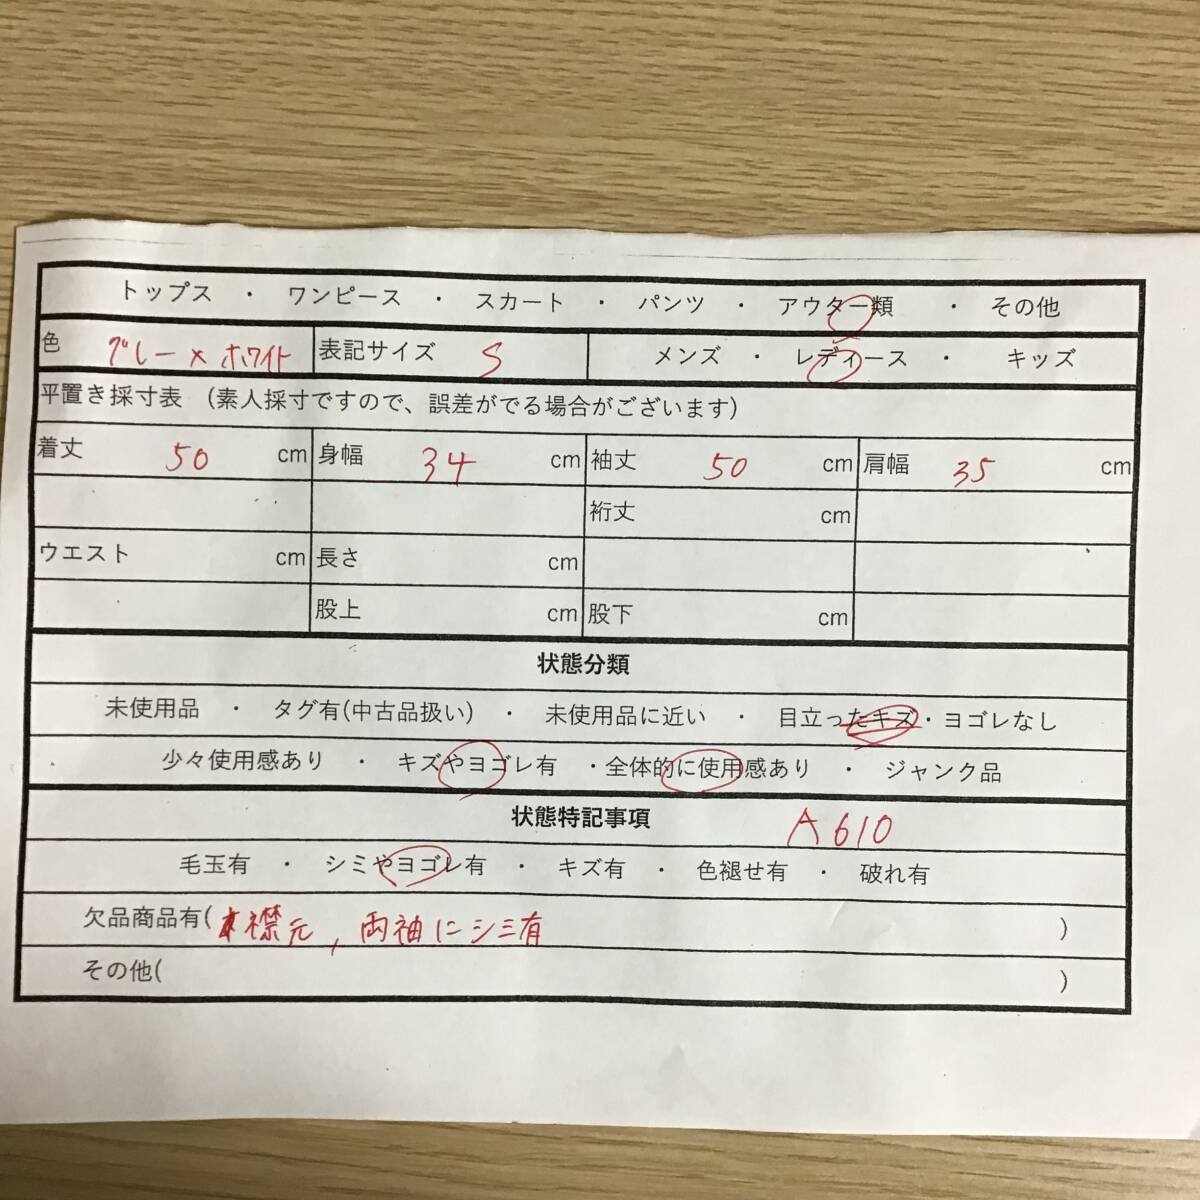 トップス ・ ワンピース ・ スカート ・ パンツ ・ アウター類 ・ その他
色 グレー×ホワイト 表記サイズ S メンズ ・ レディース ・ キッズ
平置き採寸表 (素人採寸ですので、誤差がでる場合がございます)
着丈 50 cm 身幅 34 cm 袖丈 50 cm 肩幅 35 cm
裄丈 cm
ウエスト cm 長さ cm
股上 cm 股下 cm
状態分類
未使用品 ・ タグ有(中古品扱い) ・ 未使用品に近い ・ 目立ったキズ・ヨゴレなし
少々使用感あり ・ キズやヨゴレ有 ・全体的に使用感あり ・ ジャンク品
状態特記事項 A610
毛玉有 ・ シミやヨゴレ有 ・ キズ有 ・ 色褪せ有 ・ 破れ有
欠品商品有( 襟元, 両袖にシミ有 )
その他( )